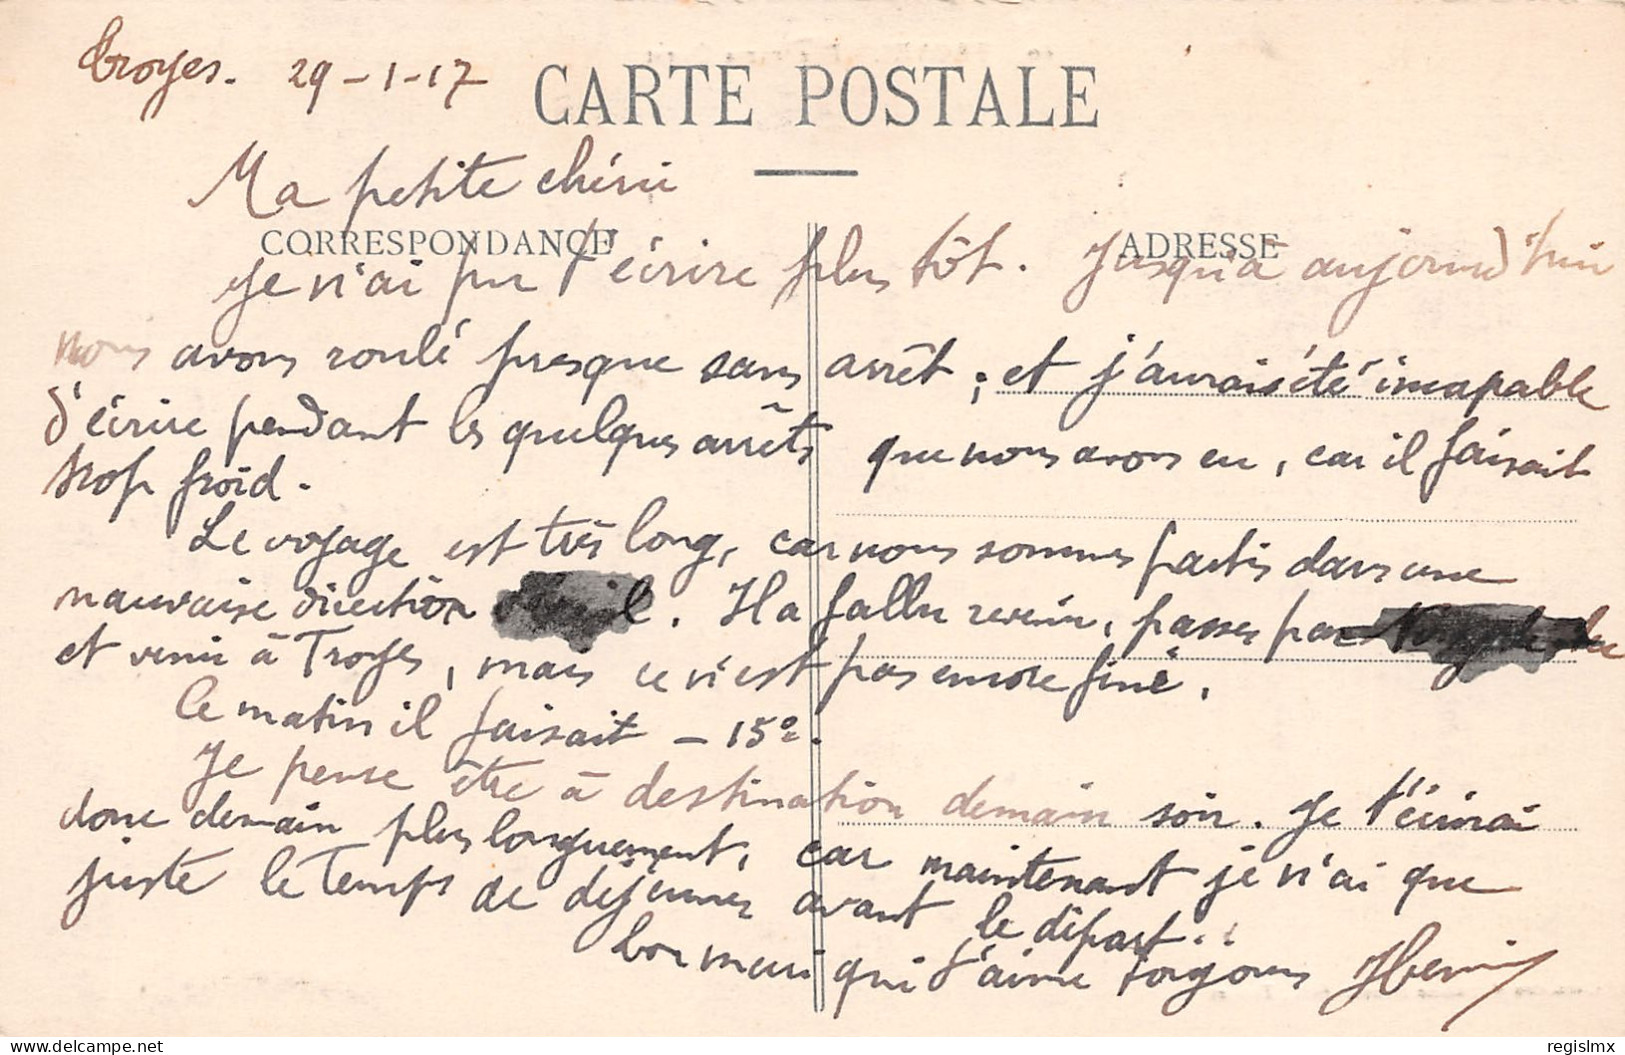 Troyes. 29-1-17
CARTE POSTALE
Ma petite chérie
CORRESPONDANCE
ADRESSE
Je n'ai pu t'écrire plus tôt. Jusqu'à aujourd'hui
nous avons roulé presque sans arrêt, et j'aurais été incapable
d'écrire pendant les quelques arrêts que nous avons eu, car il faisait
trop froid.
Le voyage est très long, car nous sommes partis dans une
mauvaise direction . Il a fallu revenir, passer par
et venir à Troyes, mais ce n'est pas encore fini.
Ce matin il faisait -15º.
Je pense être à destination demain soir. Je t'écrirai
donc demain plus longuement, car maintenant je n'ai que
juste le temps de déjeuner avant le départ..
Ton mari qui t'aime toujours Henri
delcampe.net
regislmx